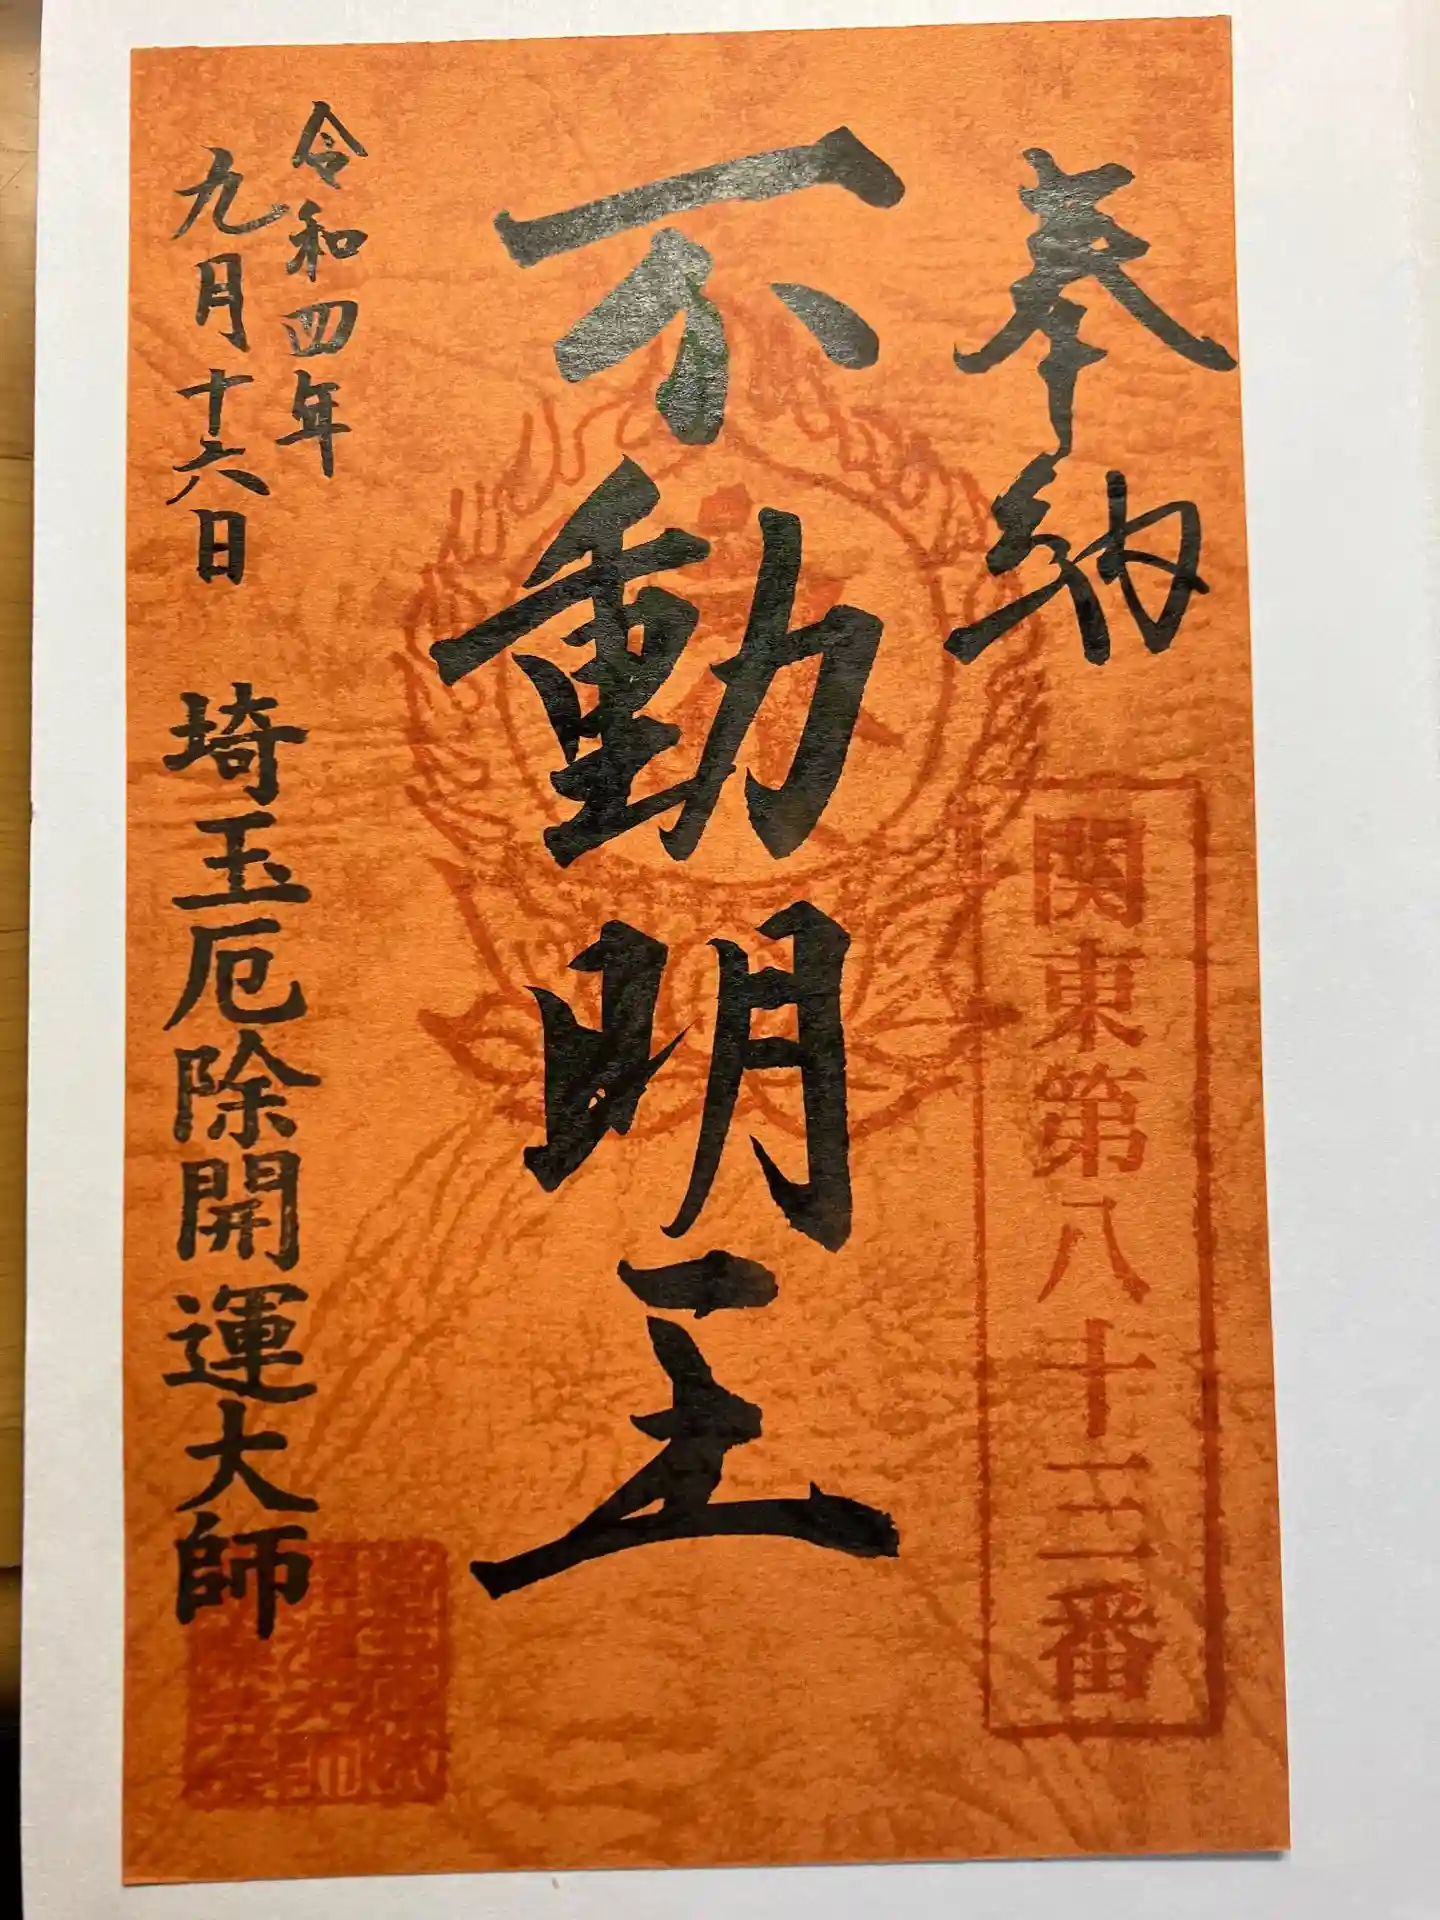 奉納
関東第八十三番
不動明王
令和四年
九月十六日
埼玉厄除開運大師